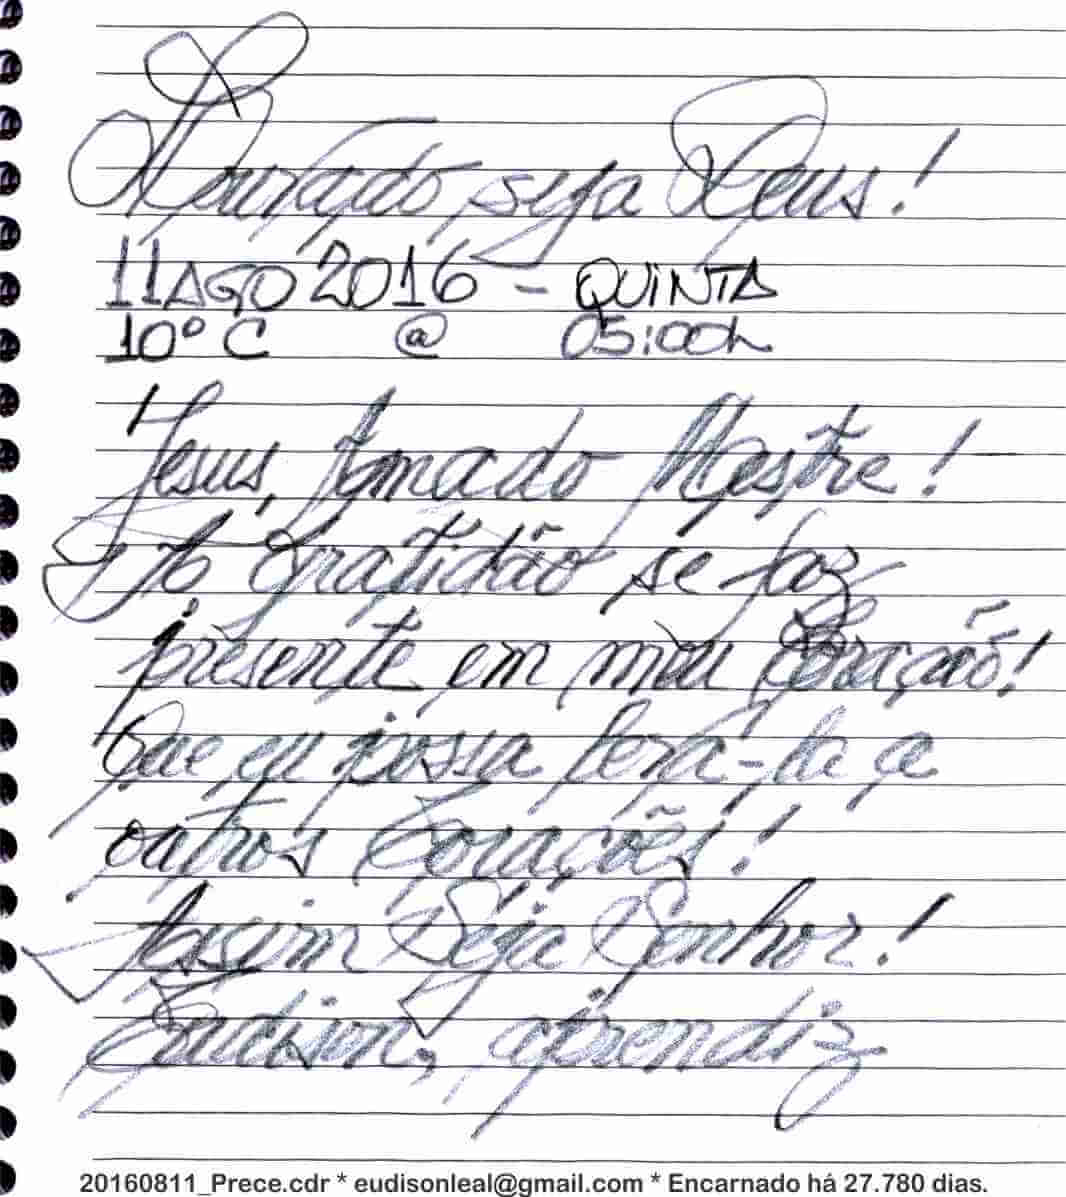 Louvado seja Deus!
11 AGO 2016 - QUINTA
10º C @ 05:00h
Jesus, Amado Mestre!
A Gratidão se faz
presente em meu Coração!
Que eu possa levá-la a
outros Corações!
Assim Seja Senhor!
Eudison, aprendiz
20160811_Prece.cdr * eudisonleal@gmail.com * Encarnado há 27.780 dias.